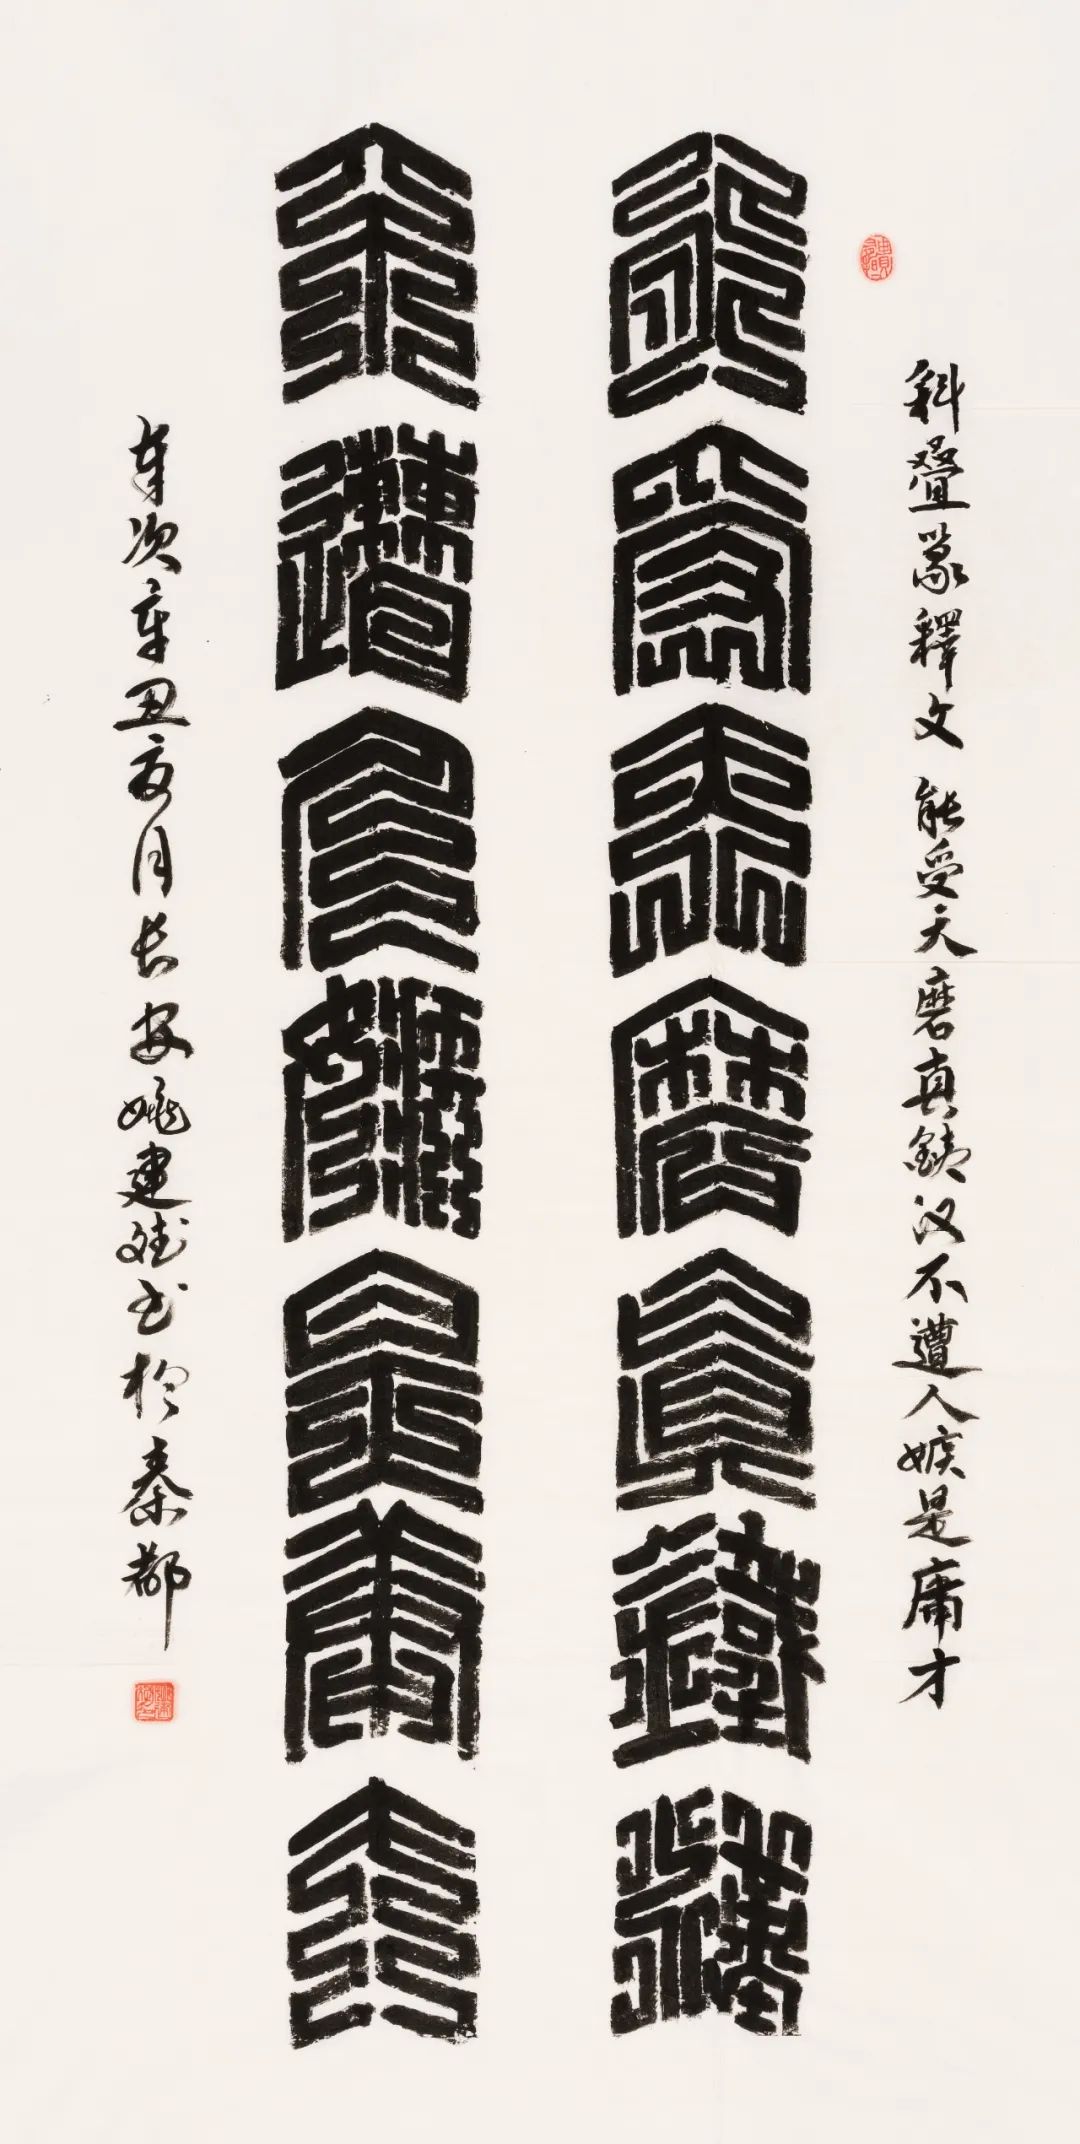 科叠篆釋文 能受天磨真鐵汉不遭人嫉是庸才
能受天磨真鐵漢
不遭人嫉是庸才
年次辛丑亥月长安姚建斌书於秦都